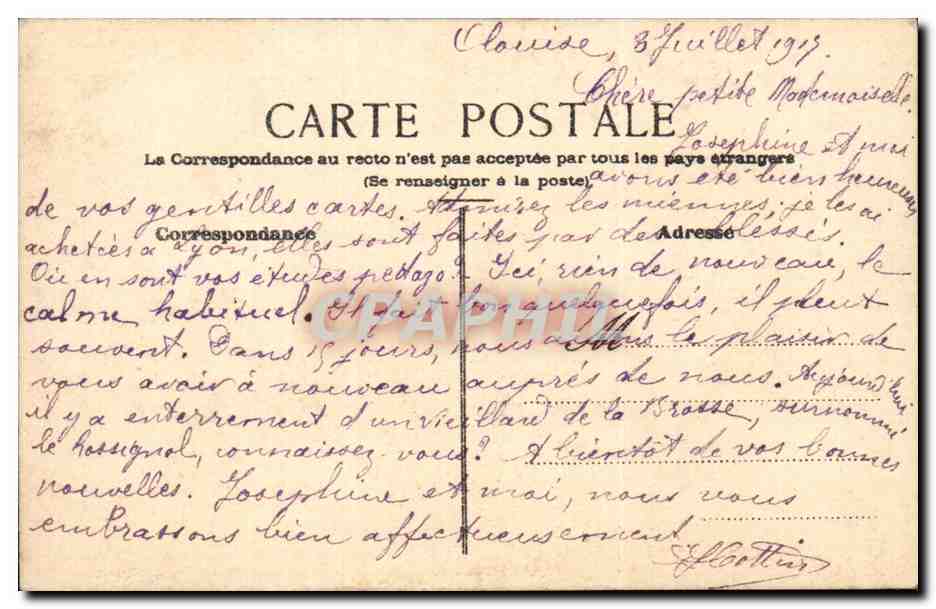 8 Juillet 1915
Chère petite Mademoiselle.
CARTE POSTALE
Josephine et moi
La Correspondance au recto n'est pas acceptée par tous les pays étrangers
avons été bien heureuses
(Se renseigner à la poste)
de vos gentilles cartes. Admirez les miennes; je les ai
Correspondance
Adresse
achetées à Lyon, elles sont faites par des blessés.
Où en sont vos études pédago? Ici, rien de nouveau, le
calme habituel. Il fait bon quelquefois, il pleut
CPAPHIL
M
souvent. Dans 15 jours, nous aurons le plaisir de
vous avoir à nouveau auprès de nous. Aujourd'hui
il y a enterrement d'un vieillard de la Brosse, surnommé
le Rossignol, connaissez-vous? A bientôt de vos bonnes
nouvelles. Josephine et moi, nous vous
embrassons bien affectueusement